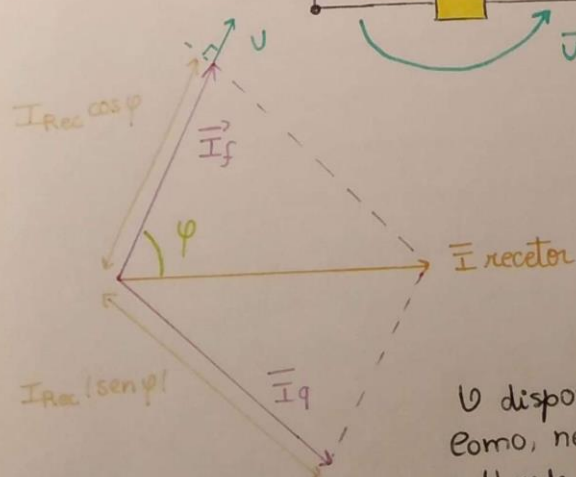 U
U
I_Rec cosφ
I_f
φ
I recetor
I_Rec |senφ|
I_q
U dispo
como, ne